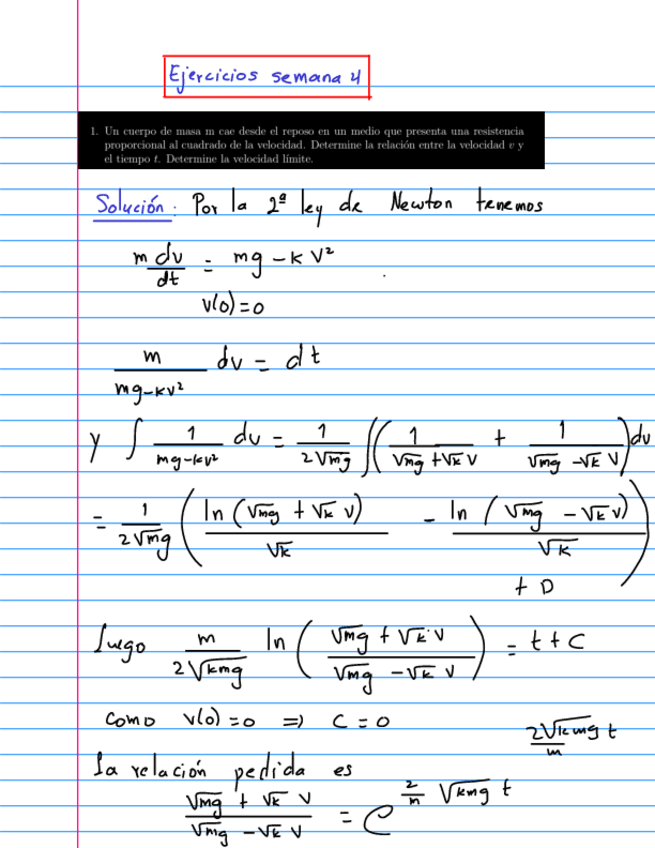 Ejercicios semana 4
1. Un cuerpo de masa m cae desde el reposo en un medio que presenta una resistencia
proporcional al cuadrado de la velocidad. Determine la relación entre la velocidad v y
el tiempo t. Determine la velocidad límite.
Solución: Por la 2ª ley de Newton tenemos
m dv/dt = mg - k v²
v(0) = 0
m/(mg - kv²) dv = dt
y ∫ 1/(mg - kv²) dv = 1/(2√mg) ∫ (1/(√mg + √k v) + 1/(√mg - √k v)) dv
= 1/(2√mg) (ln(√mg + √k v)/√k - ln(√mg - √k v)/√k)
+ D
luego m/(2√kmg) ln((√mg + √k v)/(√mg - √k v)) = t + c
como v(0) = 0 ⇒ c = 0
2√kmg t/m
la relación pedida es
(√mg + √k v)/(√mg - √k v) = e^(2/m √kmg t)